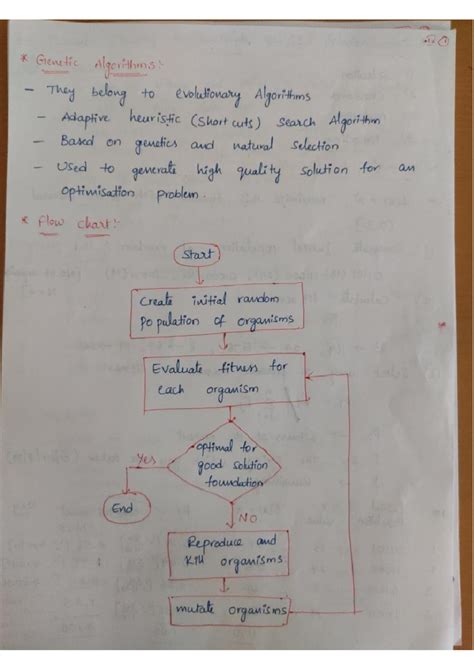 * Genetic Algorithms:-
- They belong to evolutionary Algorithms
- Adaptive heuristic (short cuts) search Algorithm
- Based on genetics and natural selection
- Used to generate high quality solution for an
optimisation problem.
* Flow chart:-
Start
Create initial random
population of organisms
Evaluate fitness for
each organism
optimal for
good solution
foundation
Yes
End
NO
Reproduce and
Kill organisms
mutate organisms